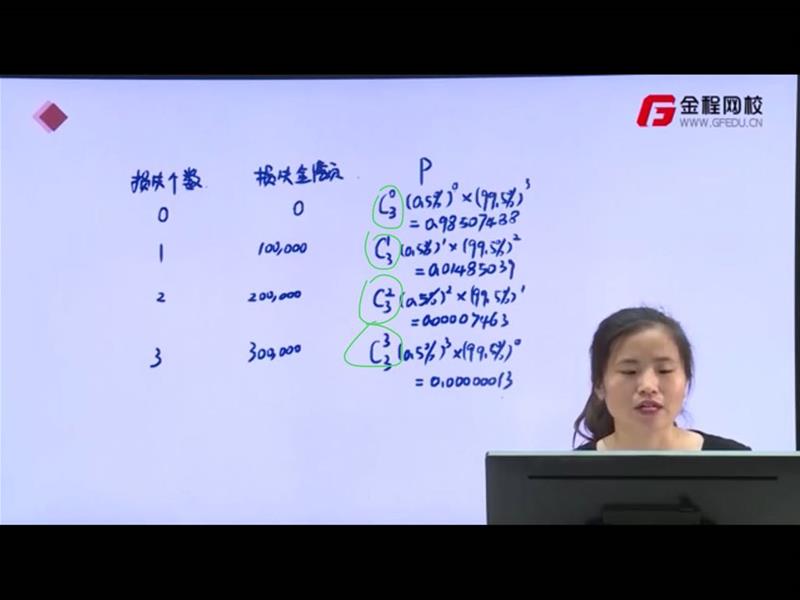 金程网校
WWW.GFEDU.CN
损失个数 损失金额 P
0 0 C₃⁰(0.5%)⁰×(99.5%)³
= 0.98507488
1 100,000 C₃¹(0.5%)¹×(99.5%)²
= 0.01485039
2 200,000 C₃²(0.5%)²×(99.5%)¹
= 0.00007463
3 300,000 C₃³(0.5%)³×(99.5%)⁰
= 0.00000013